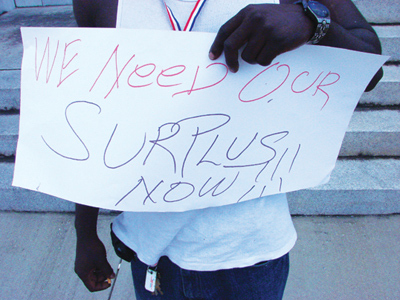 WE NeeD OUR
SURPLUS!!
NOW!!!